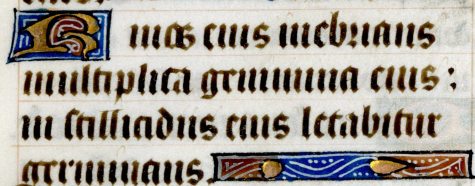 Riuos eius inebrians
multiplica genimina eius:
in stillicidiis eius letabitur
germinans.